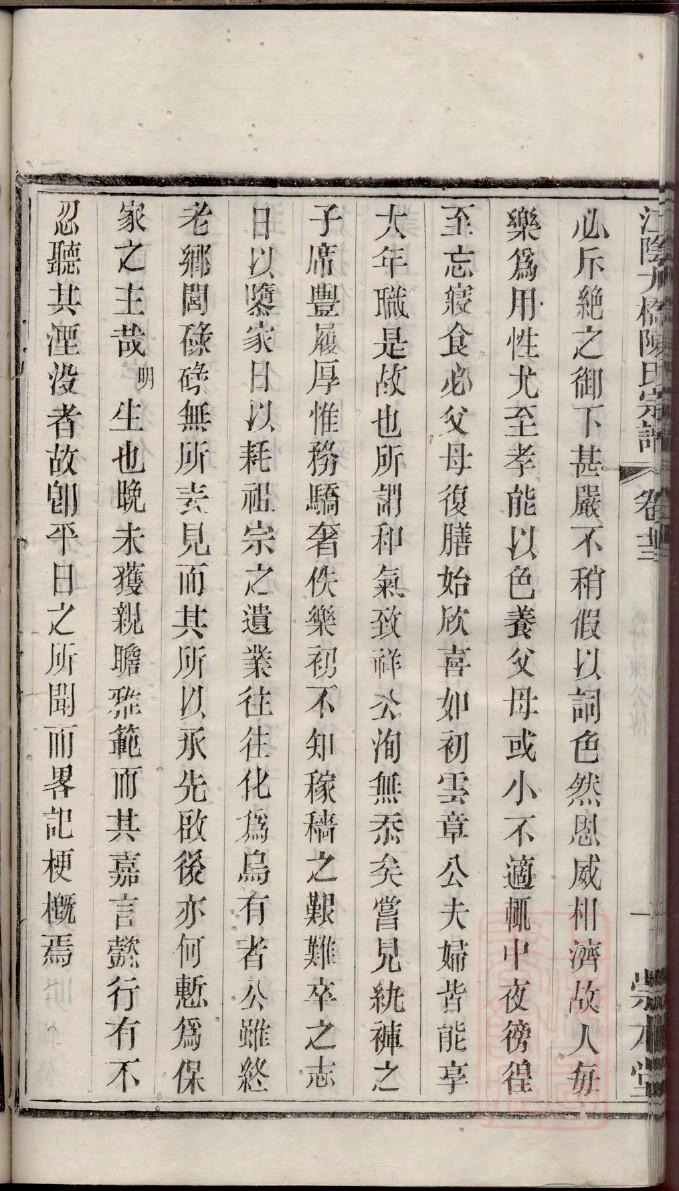 江陰九橋陳氏宗譜 卷
崇本堂
必斥絶之御下甚嚴不稍假以詞色然恩威相濟故人每
樂爲用性尤至孝能以色養父母或小不適輒中夜徬徨
至忘寢食必父母復膳始欣喜如初雲章公夫婦皆能享
大年職是故也所謂和氣致祥公洵無忝矣嘗見紈褲之
子席豐履厚惟務驕奢佚樂初不知稼穡之艱難卒之志
日以隳家日以耗祖宗之遺業往往化爲烏有者公雖終
老鄉閭碌碌無所表見而其所以承先啟後亦何慙爲保
家之主哉明生也晚未獲親瞻雅範而其嘉言懿行有不
忍聽其湮沒者故卽平日之所聞而畧記梗概焉